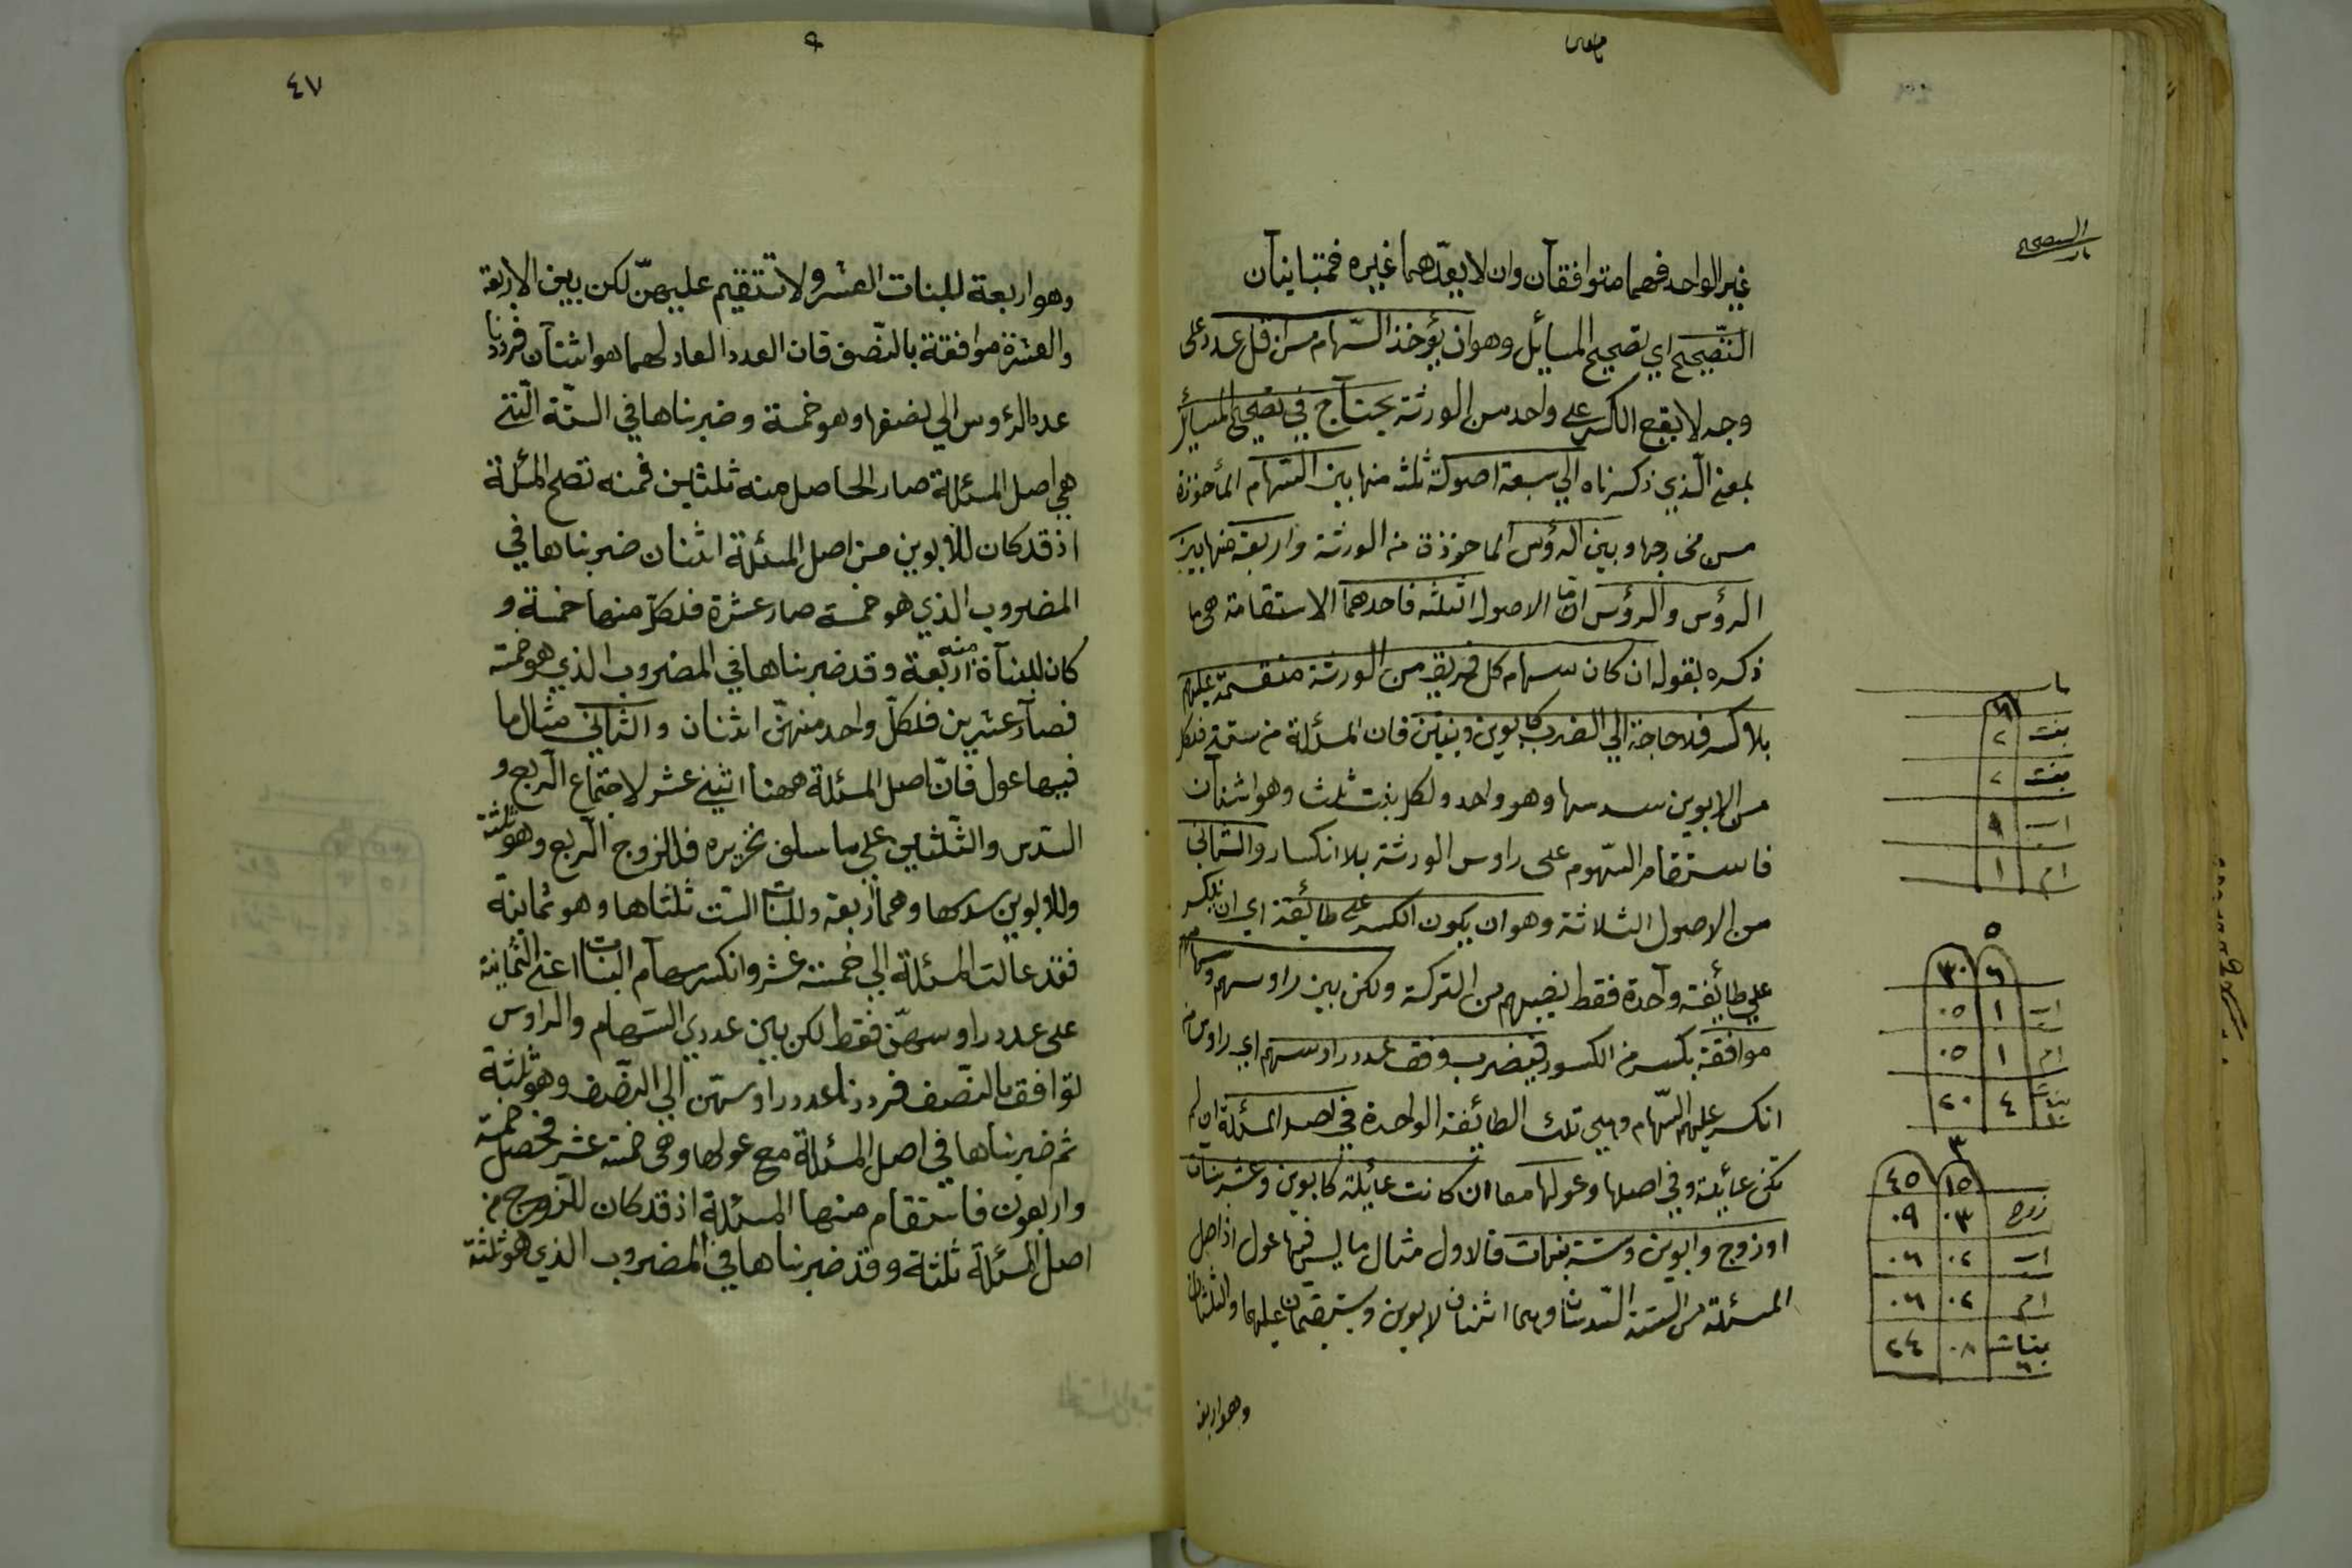 غير الواحد فهما متوافقان وان لا يعدّهما غيره فمتباينان
التصحيح اي تصحيح المسائل وهو ان يؤخذ السهام من اقل عدد على
وجه لا يقع الكسر على واحد من الورثة يحتاج في تصحيح المسائل
بمعنى الذي ذكرناه الي سبعة اصول ثلثة منها بين السهام المأخوذة
من مخارجها وبين الرؤس الماخوذة من الورثة واربعة منها بين
الرؤس والرؤس امّا الاصول الثلثة فاحدهما الاستقامة هى ما
ذكره بقوله ان كان سهام كل فريق من الورثة منقسمة عليهم
بلا كسر فلا حاجة الي الضرب كابوين وبنتين فان المسئلة من ستة فلكل
من الابوين سدسها وهو واحد ولكل بنت ثلث وهو اثنان
فاستقام السهوم على راوس الورثة بلا انكسار والثاني
من الاصول الثلاثة وهو ان يكون الكسر على طائفة اي ان ينكسر
على طائفة واحدة فقط نصيبهم من التركة ولكن بين راوسهم وسهامهم
موافقة بكسر من الكسور فيضرب وفق عدد راوسهم اي راوس من
انكسر عليهم السهام وهي تلك الطائفة الواحدة في اصل المسئلة ان لم
تكن عائلة وفي اصلها وعولها معا ان كانت عائلة كابوين وعشر بنات
او زوج وابوين وستة بنات فالاول مثال ما ليس فيها عول اذ اصل
المسئلة من الستة السدسان وهما اثنان لابوين ويستقيمان عليهما والثلثان
وهو اربعة
التصحيح
٦
بنت ٢
بنت ٢
اب ١
ام ١
٥
٦ ٣٠
اب ١ ٠٥
ام ١ ٠٥
بنات ١٠ ٤ ٢٠
٣
١٥ ٤٥
زوج ٠٣ ٠٩
اب ٠٢ ٠٦
ام ٠٢ ٠٦
بنات ٦ ٠٨ ٢٤
٤٧
وهو اربعة للبنات العشر ولا تستقيم عليهنّ لكن بين الاربعة
والعشرة موافقة بالنصف فان العدد العاد لهما هو اثنان فرددنا
عدد الرؤس الي نصفها وهو خمسة وضربناها في الستّة الّتي
هي اصل المسئلة صار الحاصل منه ثلثين فمنه تصح المسئلة
اذ قد كان للابوين من اصل المسئلة اثنان ضربناها في
المضروب الذي هو خمسة صار عشرة فلكل منهما خمسة و
كان للبنات منه اربعة وقد ضربناها في المضروب الذي هو خمسة
فصار عشرين فلكلّ واحد منهنّ اثنان والثاني مثال ما
فيها عول فانّ اصل المسئلة ههنا اثني عشر لاجتماع الربع و
السدس والثلثين علي ما سلف تحريره فللزوج الربع وهو ثلثة
وللابوين سدسها وهما اربعة وللبنات الست ثلثاها وهو ثمانية
فقد عالت المسئلة الي خمسة عشر وانكسر سهام البنات اعني الثمانية
على عدد راوسهنّ فقط لكن بين عددي السهام والراوس
توافق بالنصف فرددنا عدد راوسهن الي النصف وهو ثلثة
ثم ضربناها في اصل المسئلة مع عولها وهى خمسة عشر فحصل خمسة
واربعون فاستقام منها المسئلة اذ قد كان للزوج من
اصل المسئلة ثلثة وقد ضربناها في المضروب الذي هو ثلثة